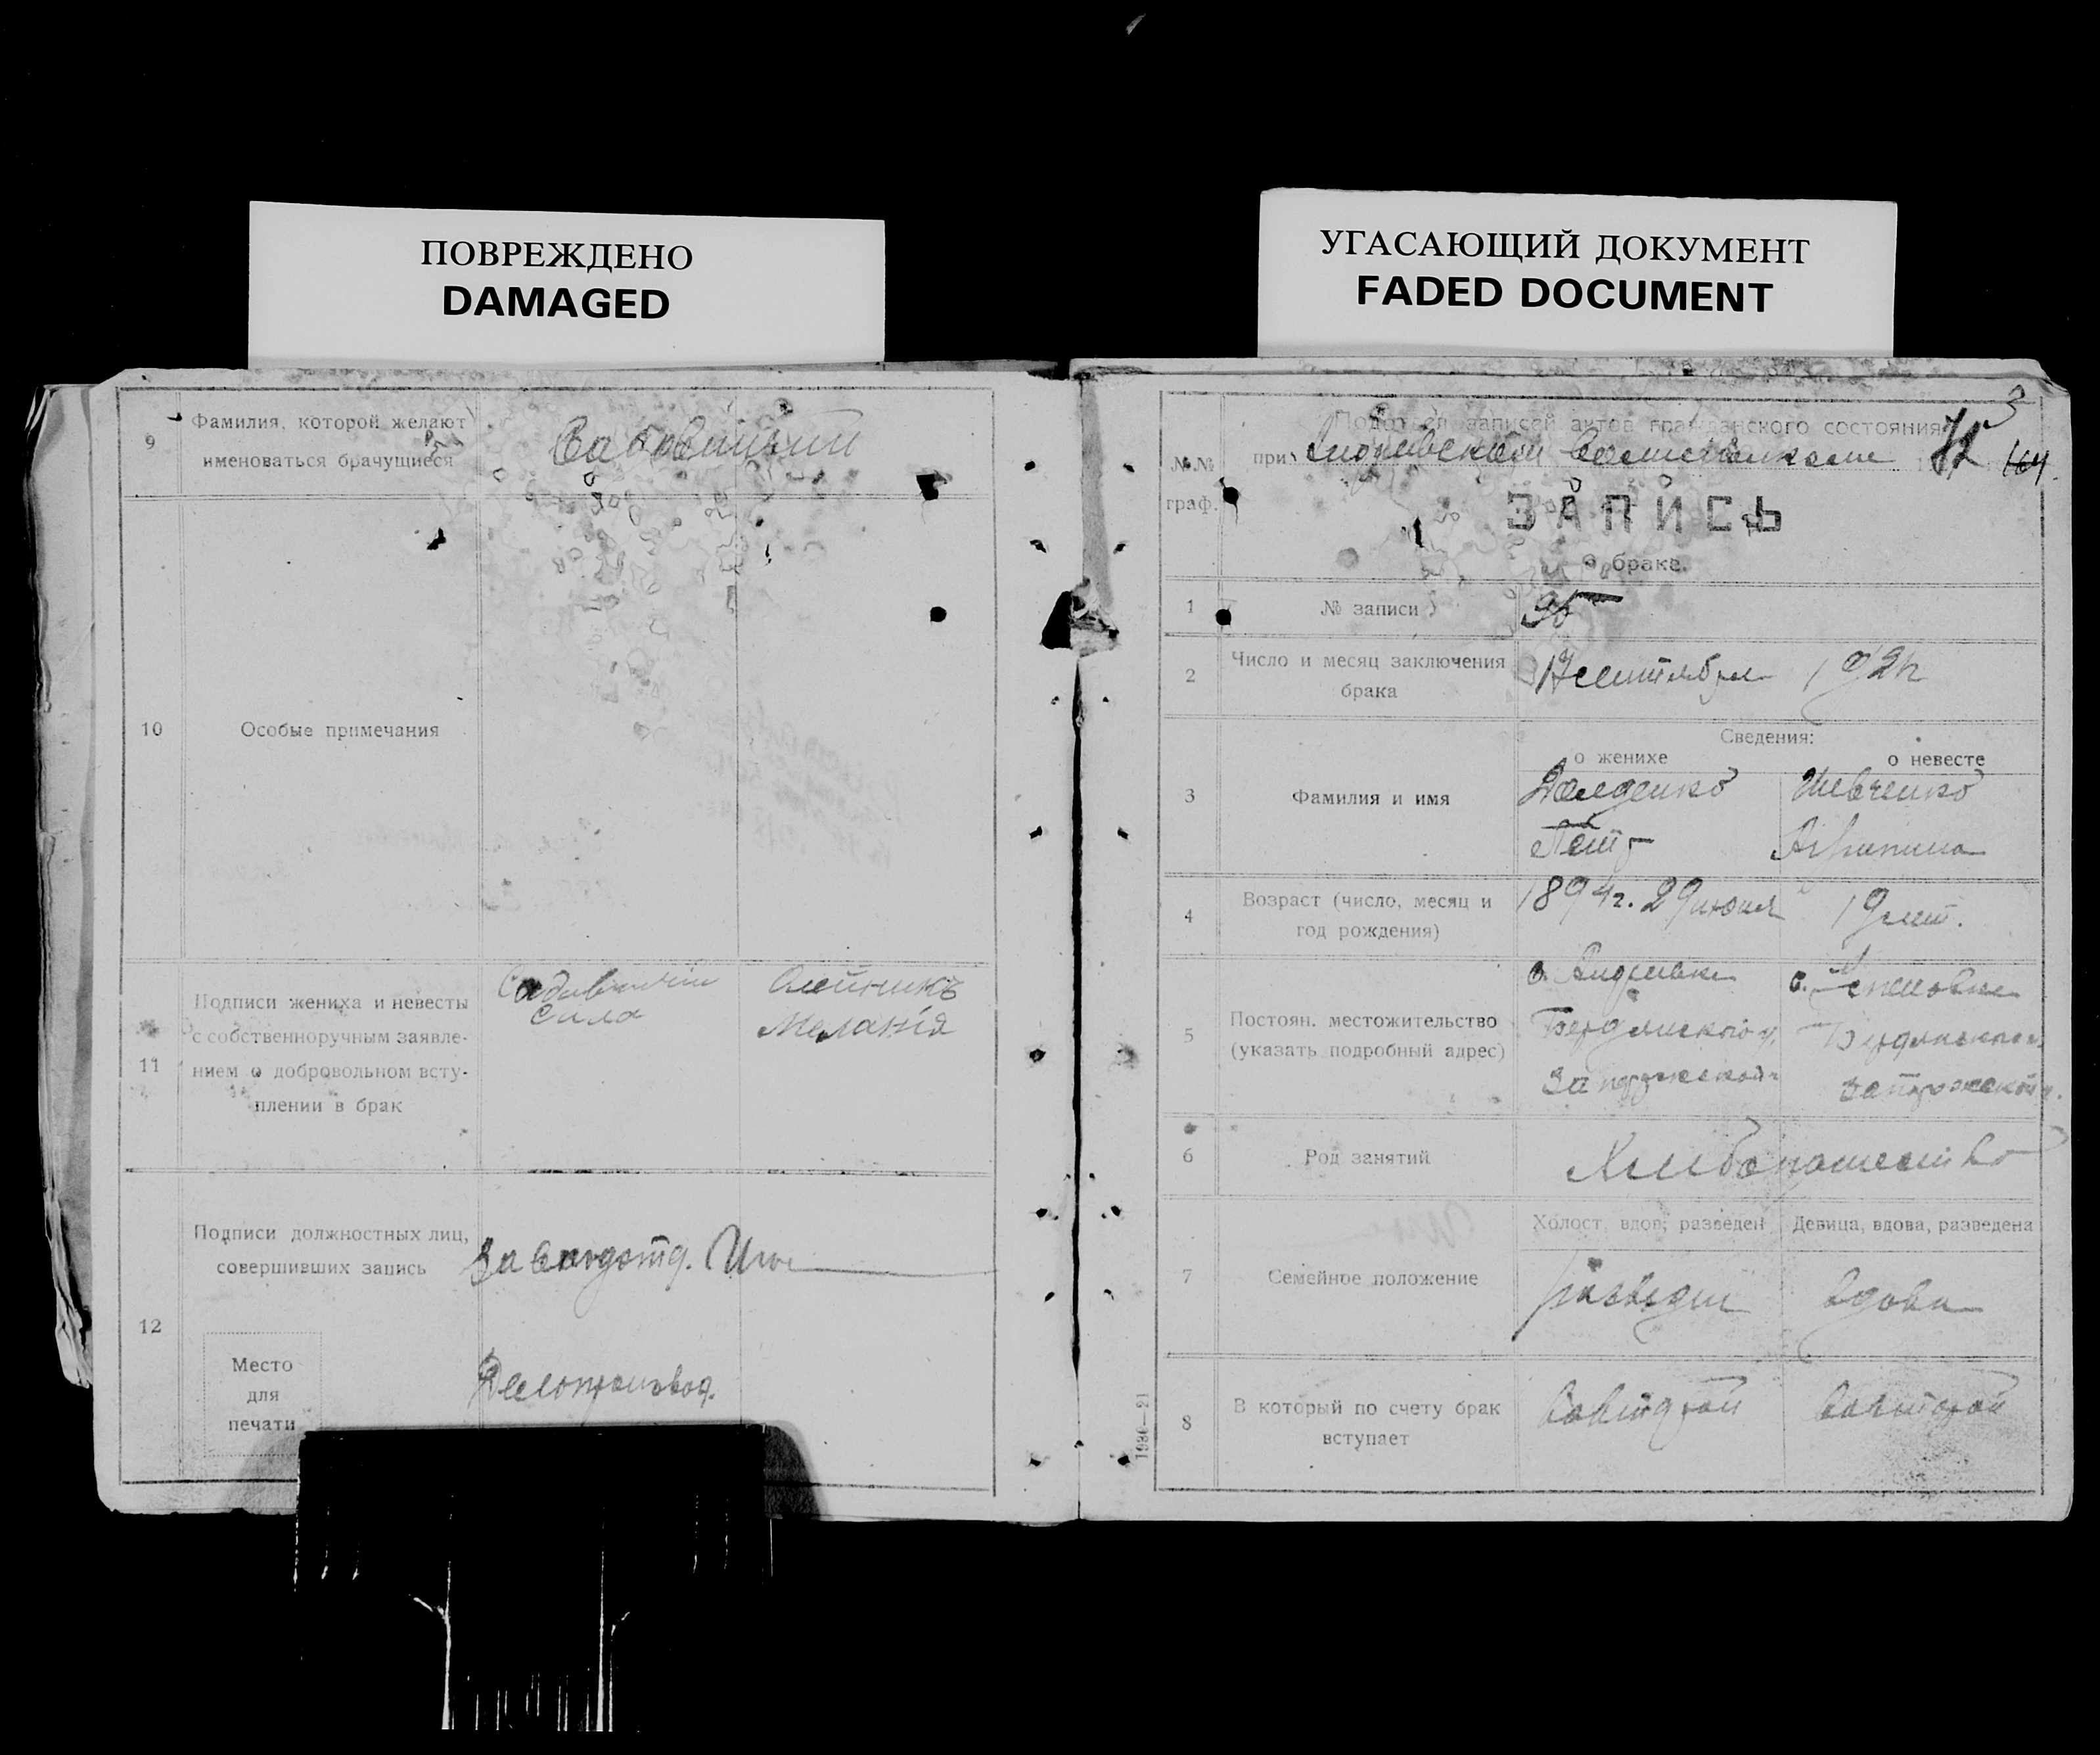 ПОВРЕЖДЕНО
DAMAGED
УГАСАЮЩИЙ ДОКУМЕНТ
FADED DOCUMENT
9
Фамилия, которой желают
именоваться брачущиеся
10
Особые примечания
11
Подписи жениха и невесты
с собственноручным заявле-
нием о добровольном всту-
плении в брак
Сила
Олейникъ
Меланія
12
Подписи должностных лиц,
совершивших запись
Завподотд.
Место
для
печати
Делопроизвод.
3
Подотдел записей актов гражданского состояния
№№
граф.
при Андреевском
164
ЗАПИСЬ
о браке.
1
№ записи
2
Число и месяц заключения
брака
сентября 192
Сведения:
о женихе
о невесте
3
Фамилия и имя
Шевченко
Петр
Агрипина
4
Возраст (число, месяц и
год рождения)
1894г. 29 июня
19 лет.
5
Постоян. местожительство
(указать подробный адрес)
с. Андреевки
Бердянского у.
Запорожской г.
с.
Бердянского у.
Запорожской г.
6
Род занятий
Хлебопашество
7
Семейное положение
Холост, вдов, разведен
Девица, вдова, разведена
разведен
вдова
8
В который по счету брак
вступает
во второй
во второй
1930—21